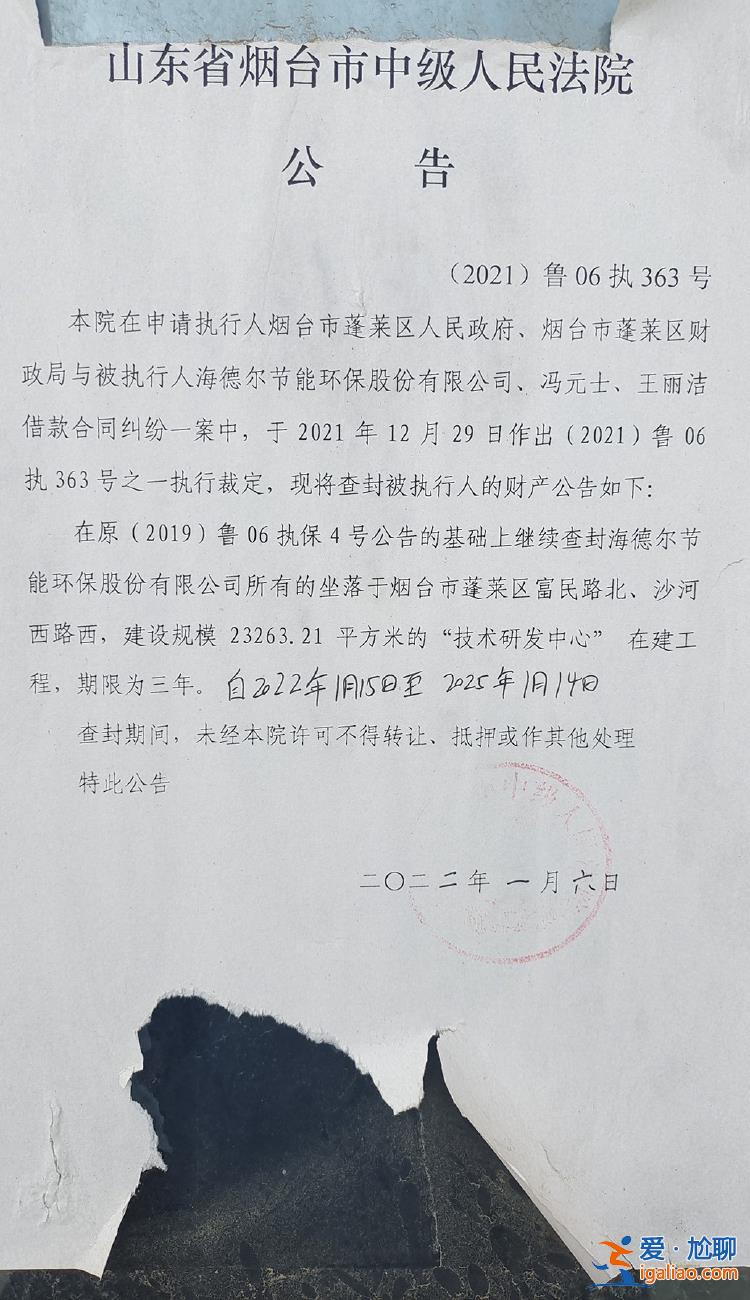 山东省烟台市中级人民法院
公 告
（2021）鲁 06 执 363 号
本院在申请执行人烟台市蓬莱区人民政府、烟台市蓬莱区财
政局与被执行人海德尔节能环保股份有限公司、冯元士、王丽洁
借款合同纠纷一案中，于 2021 年 12 月 29 日作出（2021）鲁 06
执 363 号之一执行裁定，现将查封被执行人的财产公告如下：
在原（2019）鲁 06 执保 4 号公告的基础上继续查封海德尔节
能环保股份有限公司所有的坐落于烟台市蓬莱区富民路北、沙河
西路西，建设规模 23263.21 平方米的“技术研发中心” 在建工
程，期限为三年。自2022年1月15日至 2025年1月14日
查封期间，未经本院许可不得转让、抵押或作其他处理
特此公告
中级人
二〇二二年 一月六日
爱·尬聊
igaliao.com